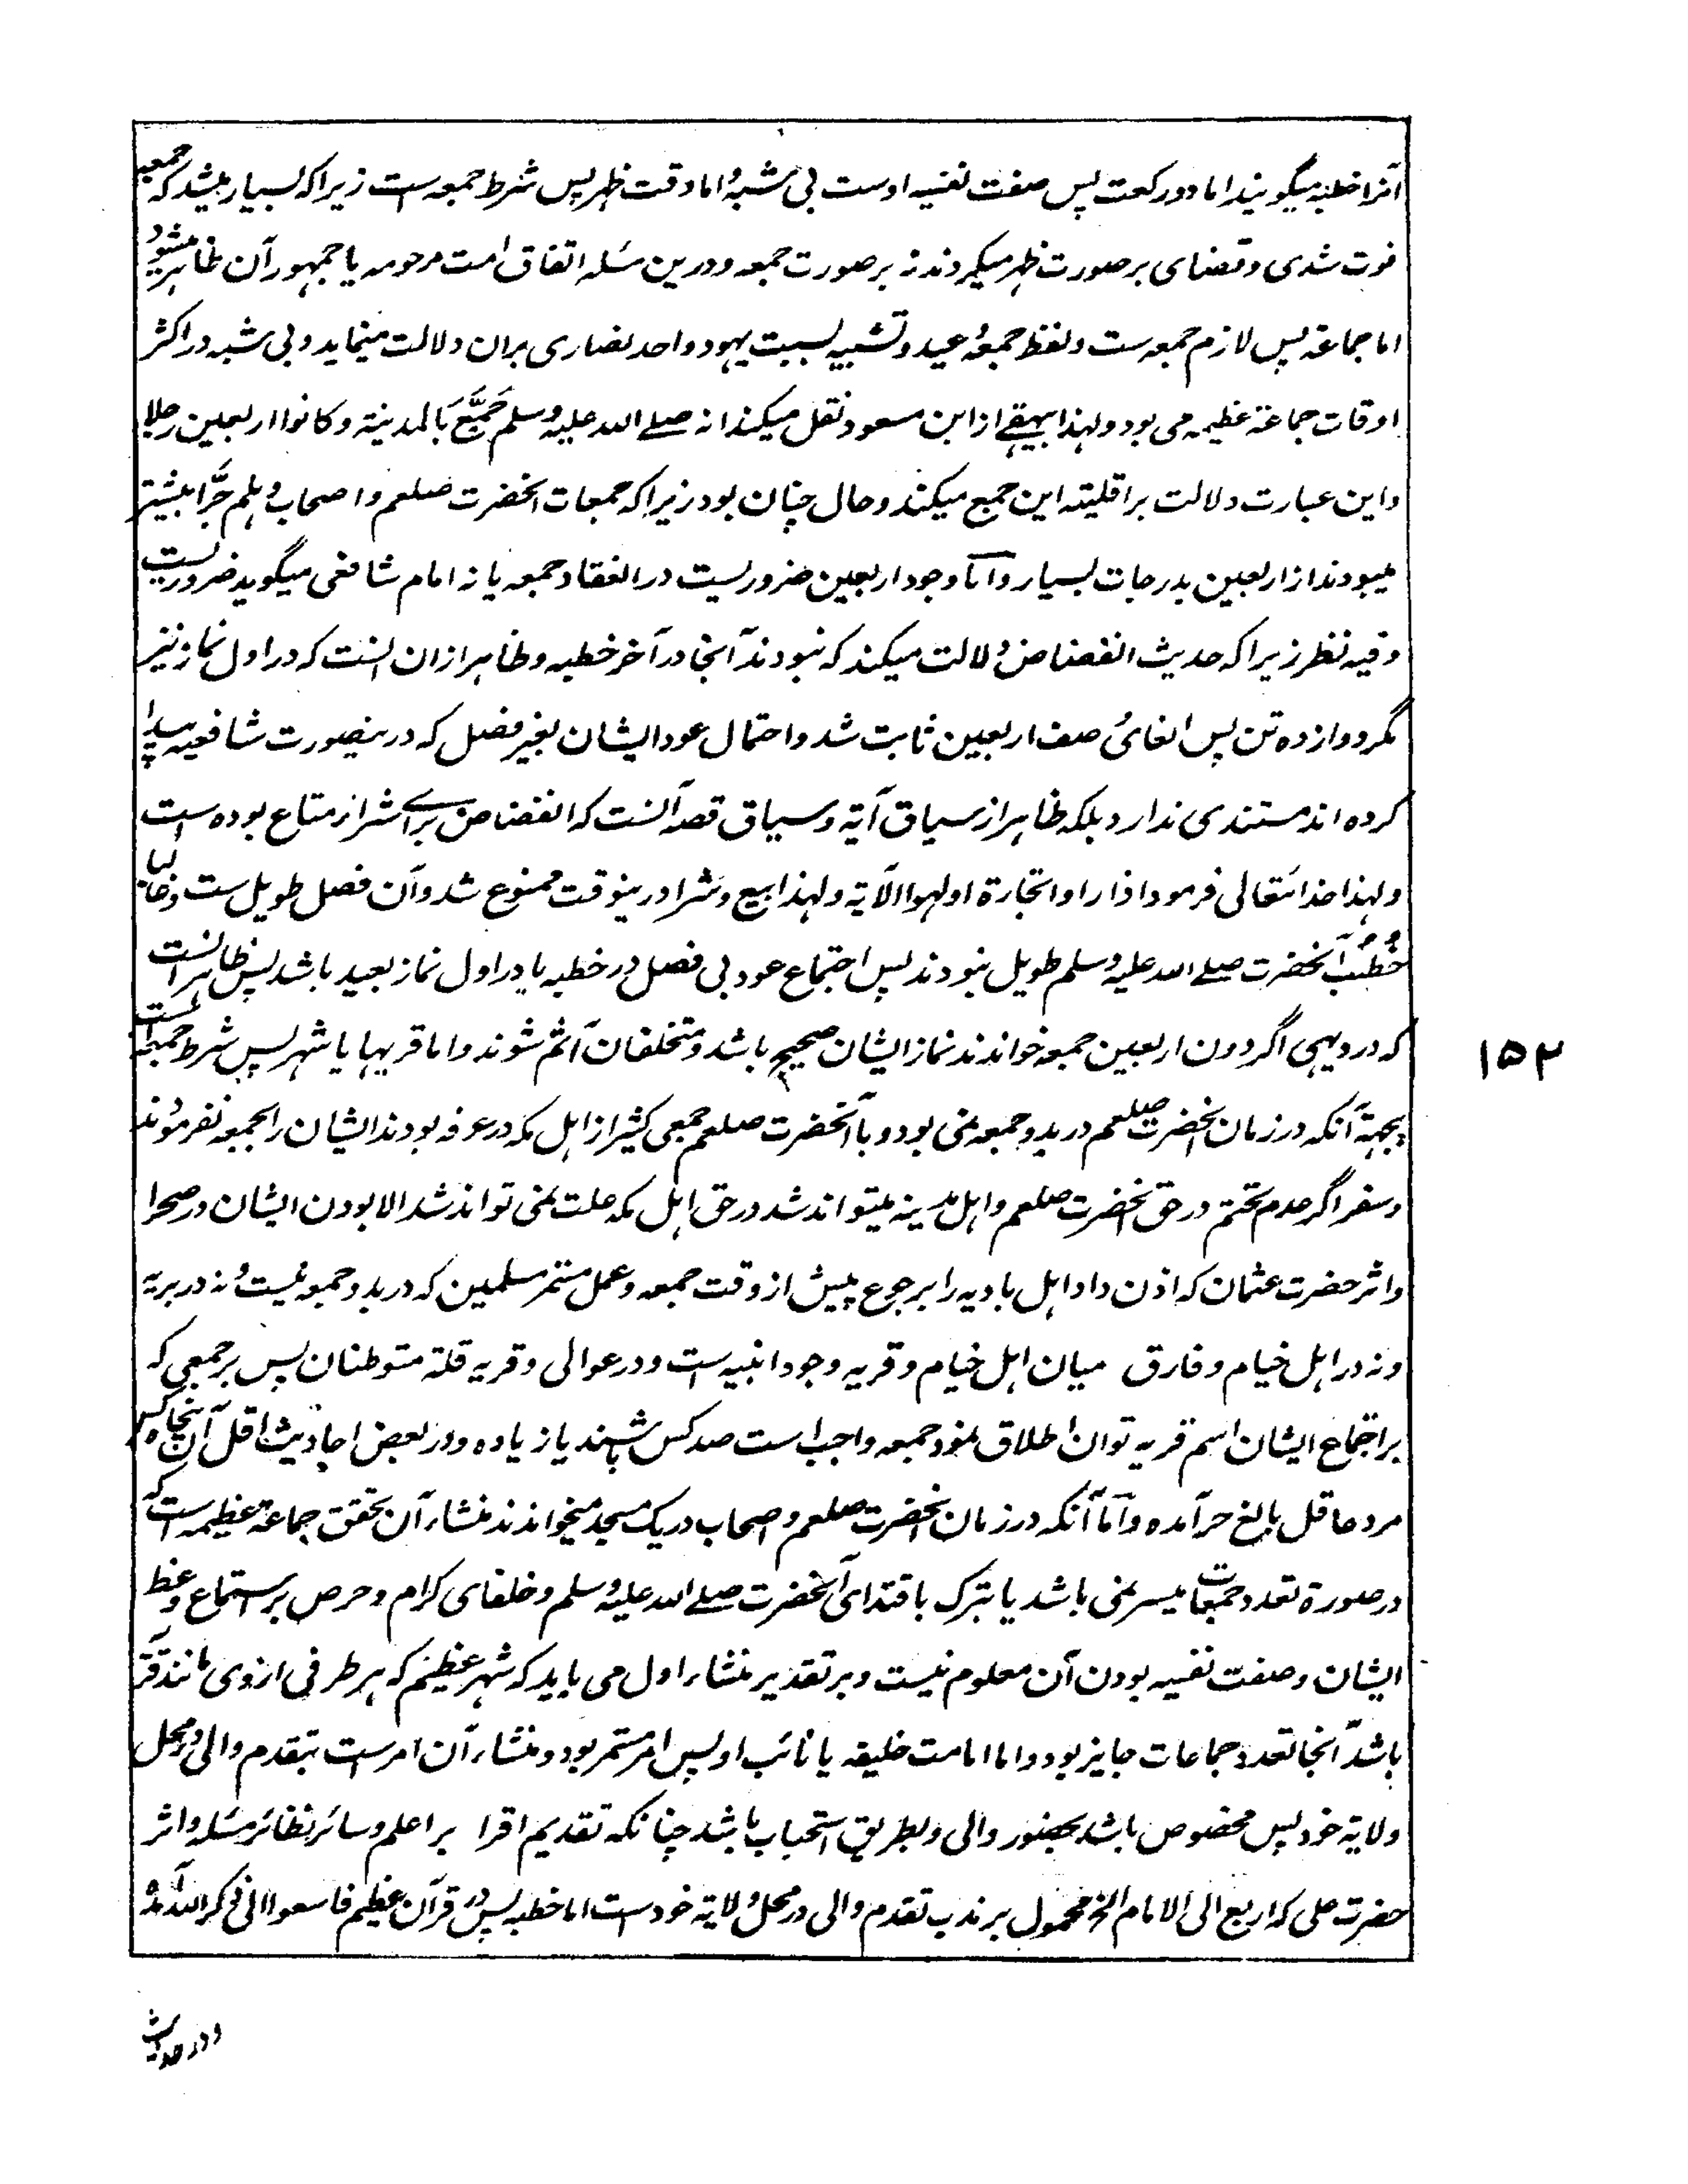 آنرا خطبه میگویند اما دو رکعت پس صفت نفسیه اوست بی شبهُ اما وقت ظهر پس شرط جمعه است زیرا که بسیار میشد که جمعه
فوت شدی و قضای بر صورت ظهر میکردند نه بر صورت جمعه و درین مسئله اتفاق امت مرحومه یا جمهور آن ظاهر میشود
اما جماعة پس لازم جمعه ست و لفظ جمعهُ عید و تشبیه بسبت یهود و احد نصاری بران دلالت مینماید و بی شبه در اکثر
اوقات جماعة عظیمه می بود و لهذا بیهقے از ابن مسعود نقل میکند انه صلے الله علیه وسلم جَمَّعَ بالمدینة و کانوا اربعین رجلا
و این عبارت دلالت بر اقلیته این جمع میکند و حال چنان بود زیرا که جمعات آنحضرت صلعم و اصحاب و هلم جرّا بیشتر
میبودند از اربعین بدرجات بسیار و امّا وجود اربعین ضروریست در انعقاد جمعه یا نه امام شافعی میگوید ضروریست
و فیه نظر زیرا که حدیث انفضاض دلالت میکند که نبودند آنجا در آخر خطبه و ظاهر ازان انست که در اول نماز نیز
مگر دوازده تن پس الغائ صف اربعین ثابت شد و احتمال عود ایشان بغیر فصل که درینصورت شافعیه پیدا
کرده اند مستندی ندارد بلکه ظاهر از سیاق آیة و سیاق قصه آنست که انفضاض برائے شراز متاع بوده است
و لهذا خدایتعالی فرمود اذا راوا تجارة اولهوا الآیة و لهذا بیع و شرا درینوقت ممنوع شد و آن فصل طویل ست و غالبا
خُطَبُ آنحضرت صلے الله علیه وسلم طویل نبودند پس اجتماع عود بی فصل در خطبه یا در اول نماز بعید باشد پس ظاهر انست
که در دیهی اگر دون اربعین جمعه خواندند نماز ایشان صحیح باشد و متخلفان آثم شوند و اما قریها یا شهر پس شرط جمعه است
بجهة آنکه در زمان آنحضرت صلعم در بدو جمعه نمی بود و با آنحضرت صلعم جمعی کثیر از اهل مکه در عرفه بودند ایشان را بجمعه نفرمودند
و سفر اگر عدم تحتم در حق آنحضرت صلعم و اهل مدینه میتواند شد در حق اهل مکه علت نمی تواند شد الا بودن ایشان در صحرا
و اثر حضرت عثمان که اذن داد اهل بادیه را برجوع پیش از وقت جمعه و عمل مستمر مسلمین که در بدو جمعه نیست و نه در بریه
و نه در اهل خیام و فارق میان اهل خیام و قریه وجود ابنیه ست و در عوالی و قریه قلة متوطنان پس بر جمعی که
بر اجتماع ایشان اسم قریه توان اطلاق نمود جمعه واجب است صد کس باشند یا زیاده و در بعض احادیث اقل آن پنجاه کس
مرد عاقل بالغ حر آمده و امّا آنکه در زمان آنحضرت صلعم و اصحاب در یک مسجد میخواندند منشاء آن تحقق جماعة عظیمه است که
در صورة تعدد جمعات میسر نمی باشد یا تبرک باقتدای آنحضرت صلے الله علیه وسلم و خلفای کرام و حرص بر استماع وعظ
ایشان و صفت نفسیه بودن آن معلوم نیست و بر تقدیر منشاء اول می باید که شهر عظیم که هر طرفی ازوی مانند قر
باشد آنجا تعدد جماعات جایز بود و اما امامت خلیفه یا نائب او پس امر مستمر بود و منشاء آن امرست بتقدم والی در محل
ولایة خود پس مخصوص باشد بحضور والی و بطریق استحباب باشد چنانکه تقدیم اقرا بر اعلم و سائر نظائر مسئله و اثر
حضرت علی که اربع الی الامام الخ محمول بر ندب تقدم والی در محل ولایة خودست اما خطبه پس در قرآن عظیم فاسعوا الی ذکر الله
و در حدیث
١٥٢